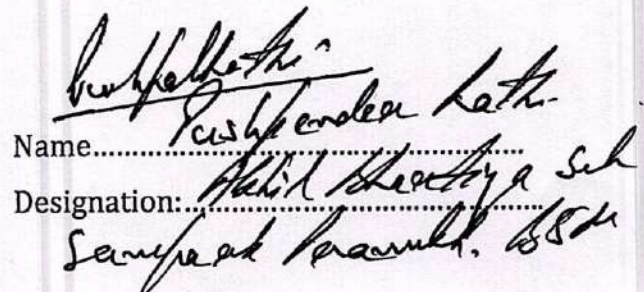 Name..........Pushpendra Rathi
Designation:..Akhil Bhartiya Seh
Sampark Pramukh. BSM